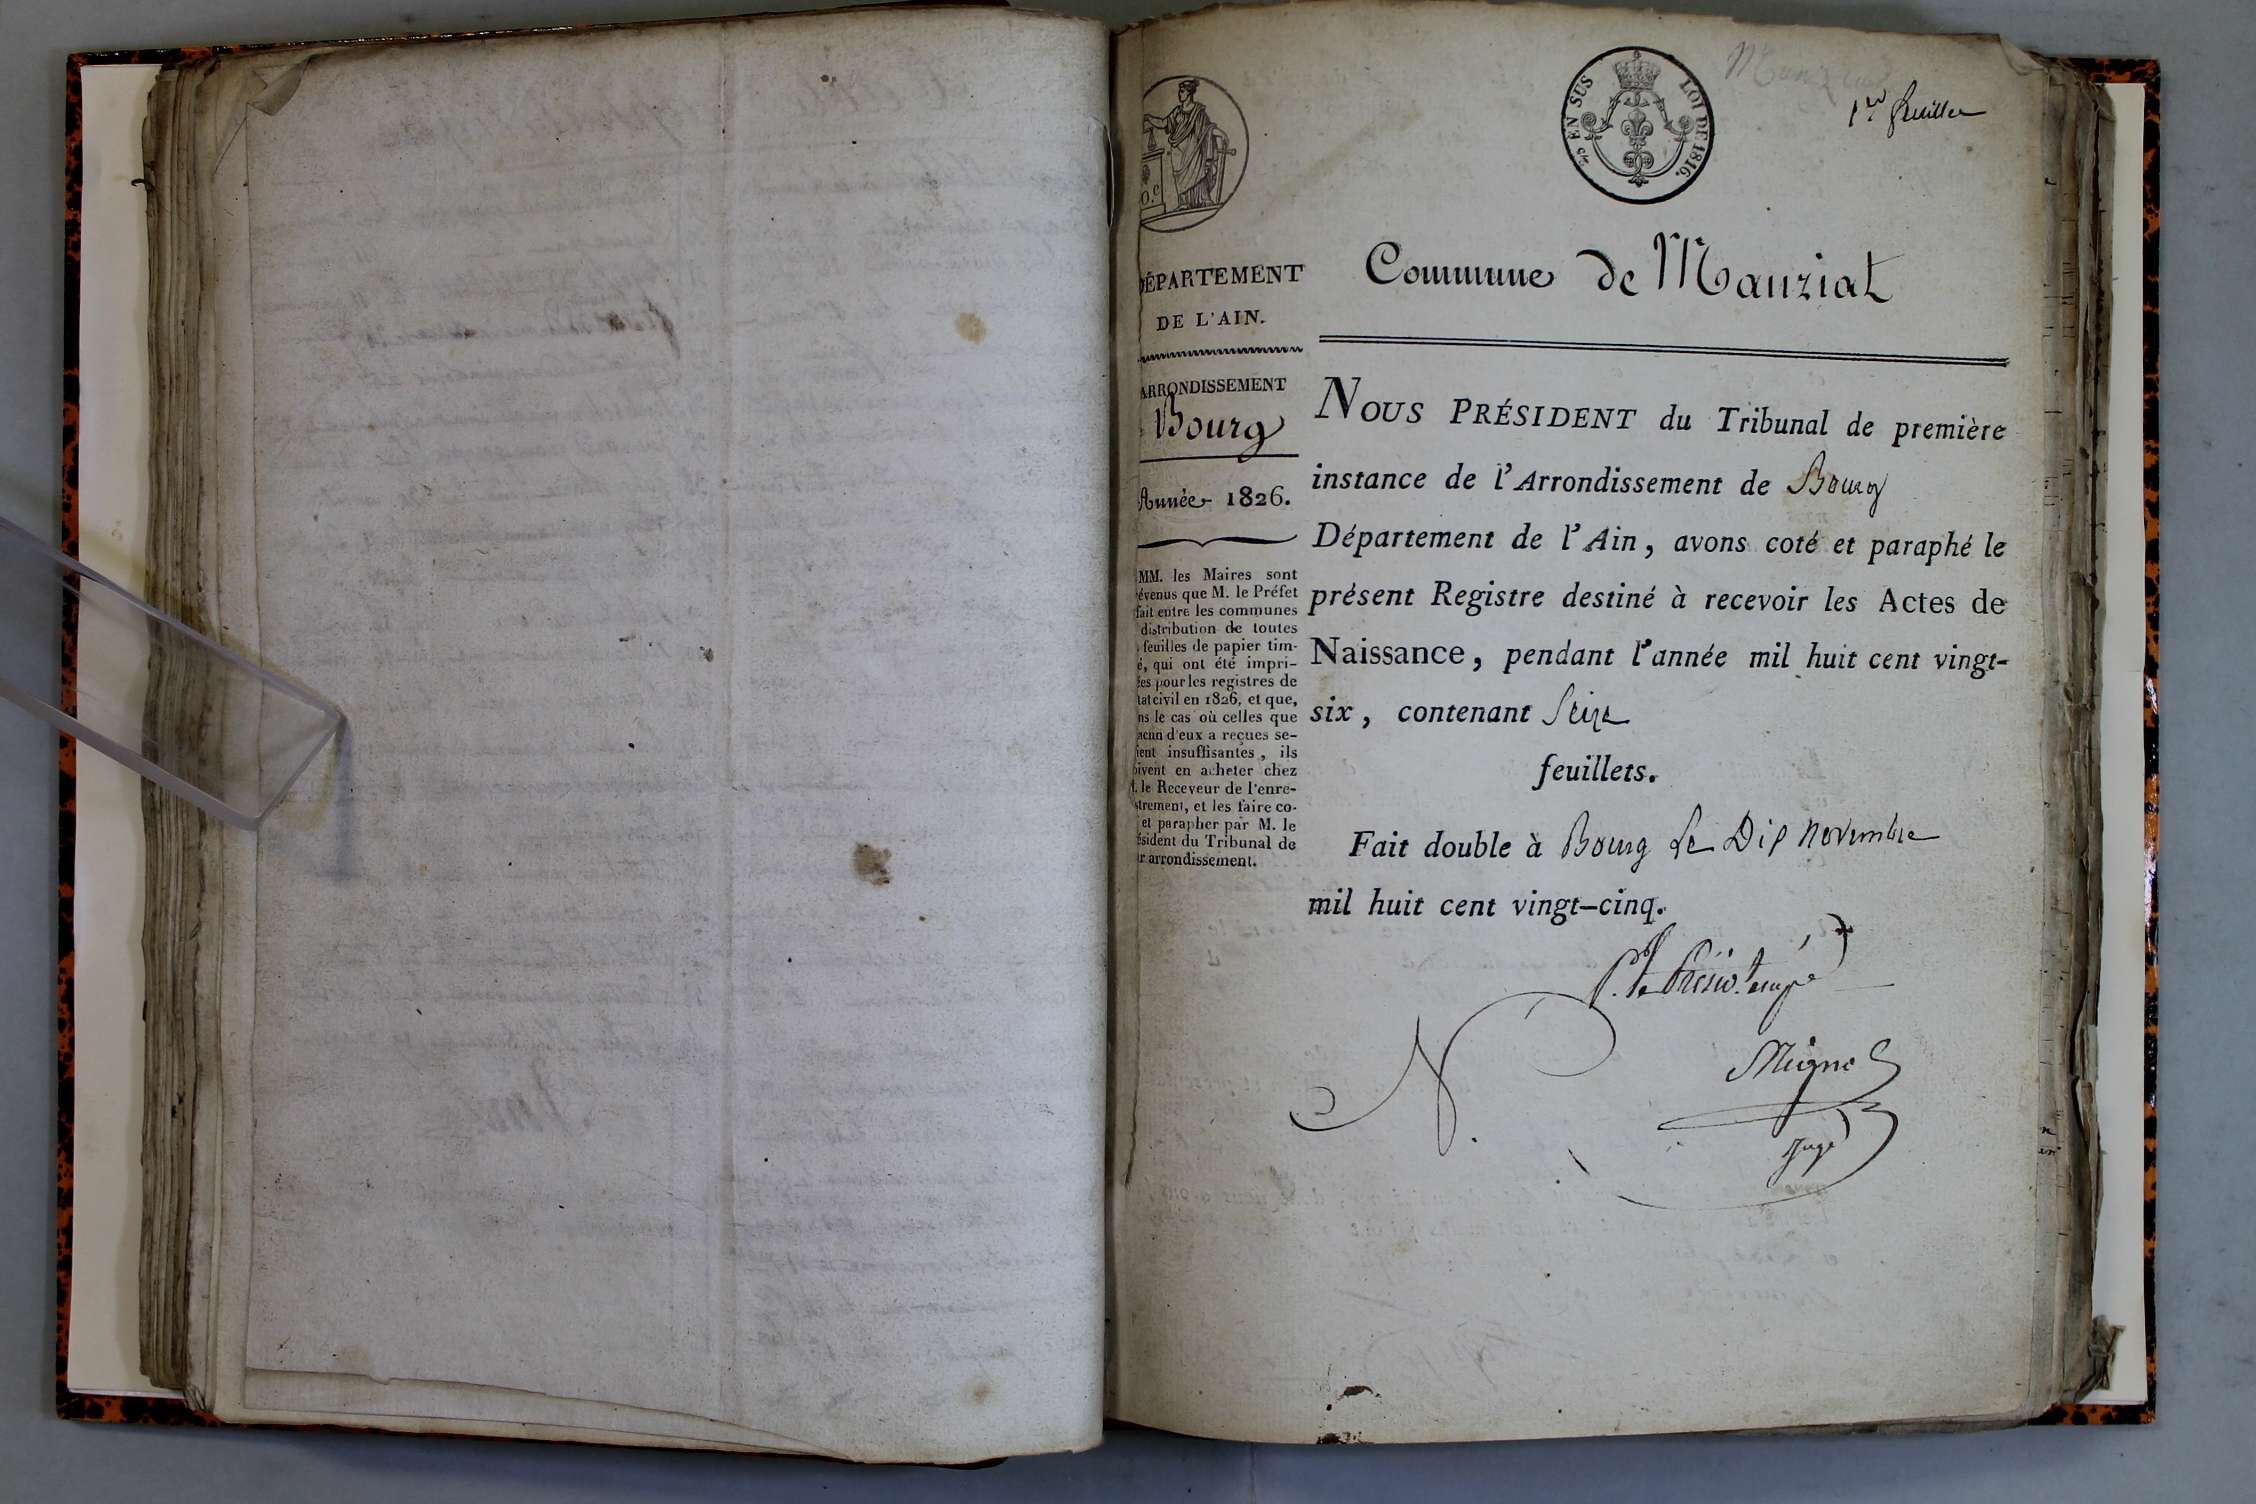 EN SUS
LOI DE 1816.
Manziat
1er feuillet
Commune de Manziat
DÉPARTEMENT
DE L'AIN.
ARRONDISSEMENT
Bourg
Année 1826.
MM. les Maires sont
évenus que M. le Préfet
fait entre les communes
distribution de toutes
feuilles de papier tim-
é, qui ont été impri-
ées pour les registres de
tat civil en 1826, et que,
ns le cas où celles que
acun d'eux a reçues se-
ient insuffisantes, ils
oivent en acheter chez
. le Receveur de l'enre-
strement, et les faire co-
et parapher par M. le
ésident du Tribunal de
r arrondissement.
NOUS PRÉSIDENT du Tribunal de première
instance de l'Arrondissement de Bourg
Département de l'Ain, avons coté et paraphé le
présent Registre destiné à recevoir les Actes de
Naissance, pendant l'année mil huit cent vingt-
six, contenant Seize
feuillets.
Fait double à Bourg Le Dix novembre
mil huit cent vingt-cinq.
P. le Présid. empé
Juge